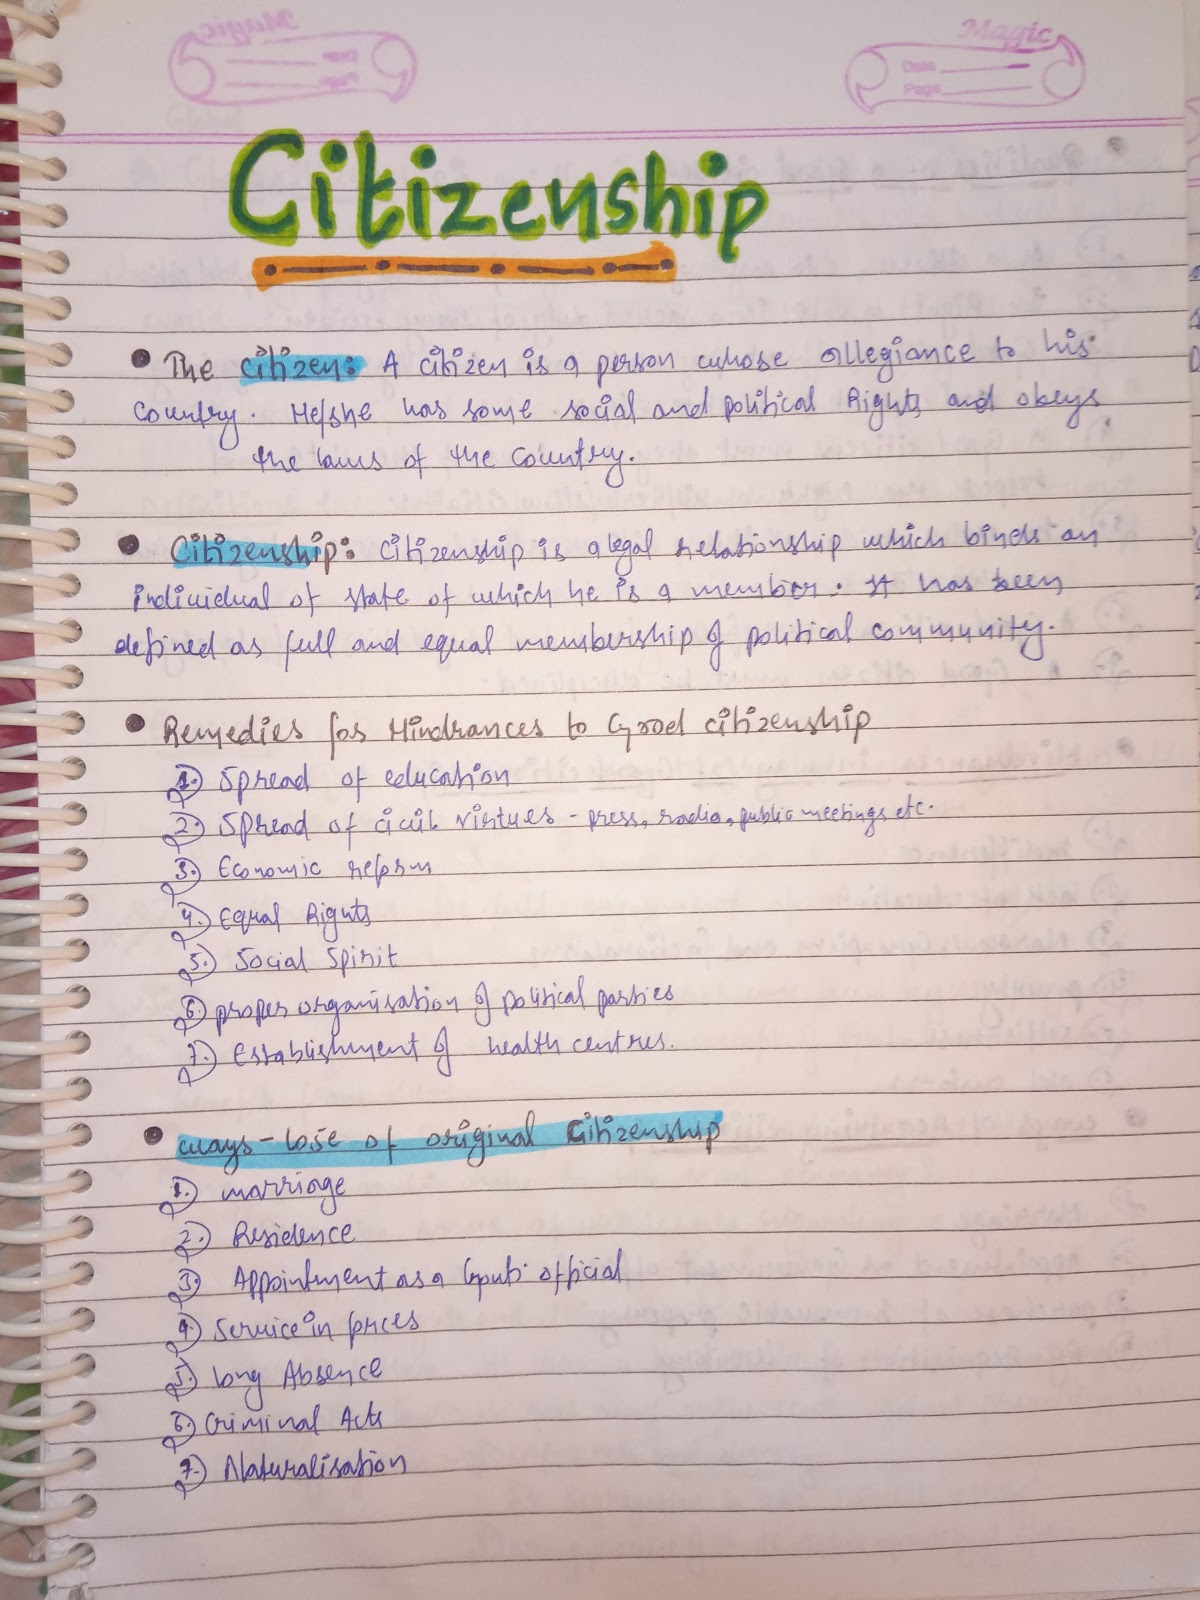 Magic
Date
Page
Citizenship
• The citizen: A citizen is a person whose allegiance to his
country. He/she has some social and political Rights and obeys
the laws of the country.
• Citizenship: Citizenship is a legal relationship which binds an
individual of state of which he is a member. It has been
defined as full and equal membership of political community.
• Remedies for Hindrances to Good citizenship
1. Spread of education
2. Spread of civil virtues - press, radio, public meetings etc.
3. Economic reform
4. Equal Rights
5. Social Spirit
6. proper organisation of political parties
7. Establishment of health centres.
• ways - lose of original Citizenship
1. marriage
2. Residence
3. Appointment as a Govt. official
4. Service in forces
5. Long Absence
6. Criminal Acts
7. Naturalisation